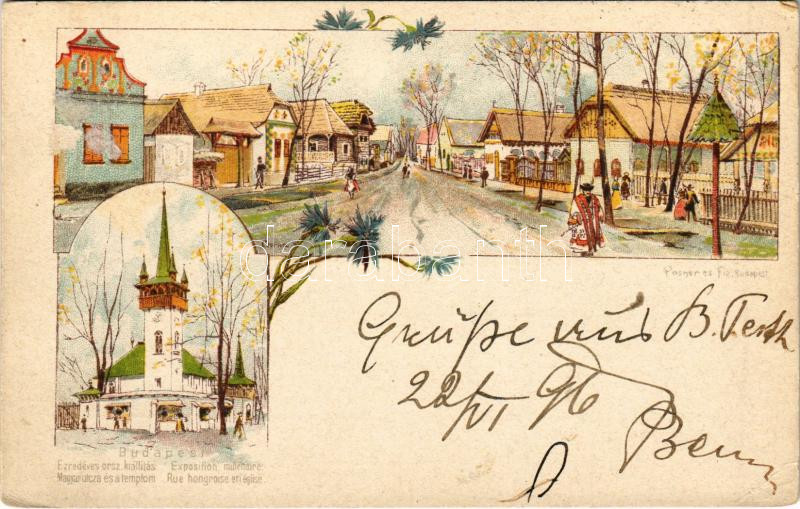 Posner és Fia, Budapest
Grüße aus B. Pesth
22/VI 96
Budapest
Ezredéves orsz. kiállítás Exposition millénaire
Magyar utcza és a templom Rue hongroise et l'église
darabanth